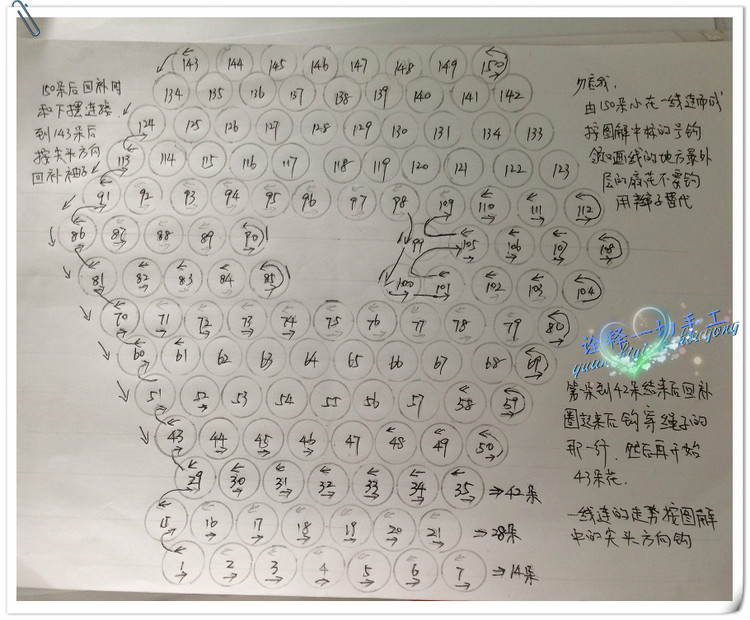 143 144 145 146 147 148 149 150
134 135 136 137 138 139 140 141 142
124 125 126 127 128 129 130 131 134 133
113 114 115 116 117 118 119 120 121 122 123
91 92 93 94 95 96 97 98 109 110 111 112
86 87 88 89 90 99 105 106 107 108
81 82 83 84 85 100 101 102 103 104
70 71 72 73 74 75 76 77 78 79 80
60 61 62 63 64 65 66 67 68 69
51 52 53 54 55 56 57 58 59
43 44 45 46 47 48 49 50
29 30 31 32 33 34 35 →42朵
15 16 17 18 19 20 21 →28朵
1 2 3 4 5 6 7 →14朵
150朵后回补时
和下摆连接
到143朵后
按尖头方向
回补袖子
勿忘我
由150朵小花一线连而成
按图解中标的号钩
领口画线的地方最外
层的麻花不要钩
用辫子替代
诠释一切手工
第1朵到42朵结束后回补
圈起来后钩穿绳子的
那一行,然后再开始
43朵花.
一线连的走势按图解
中的尖头方向钩